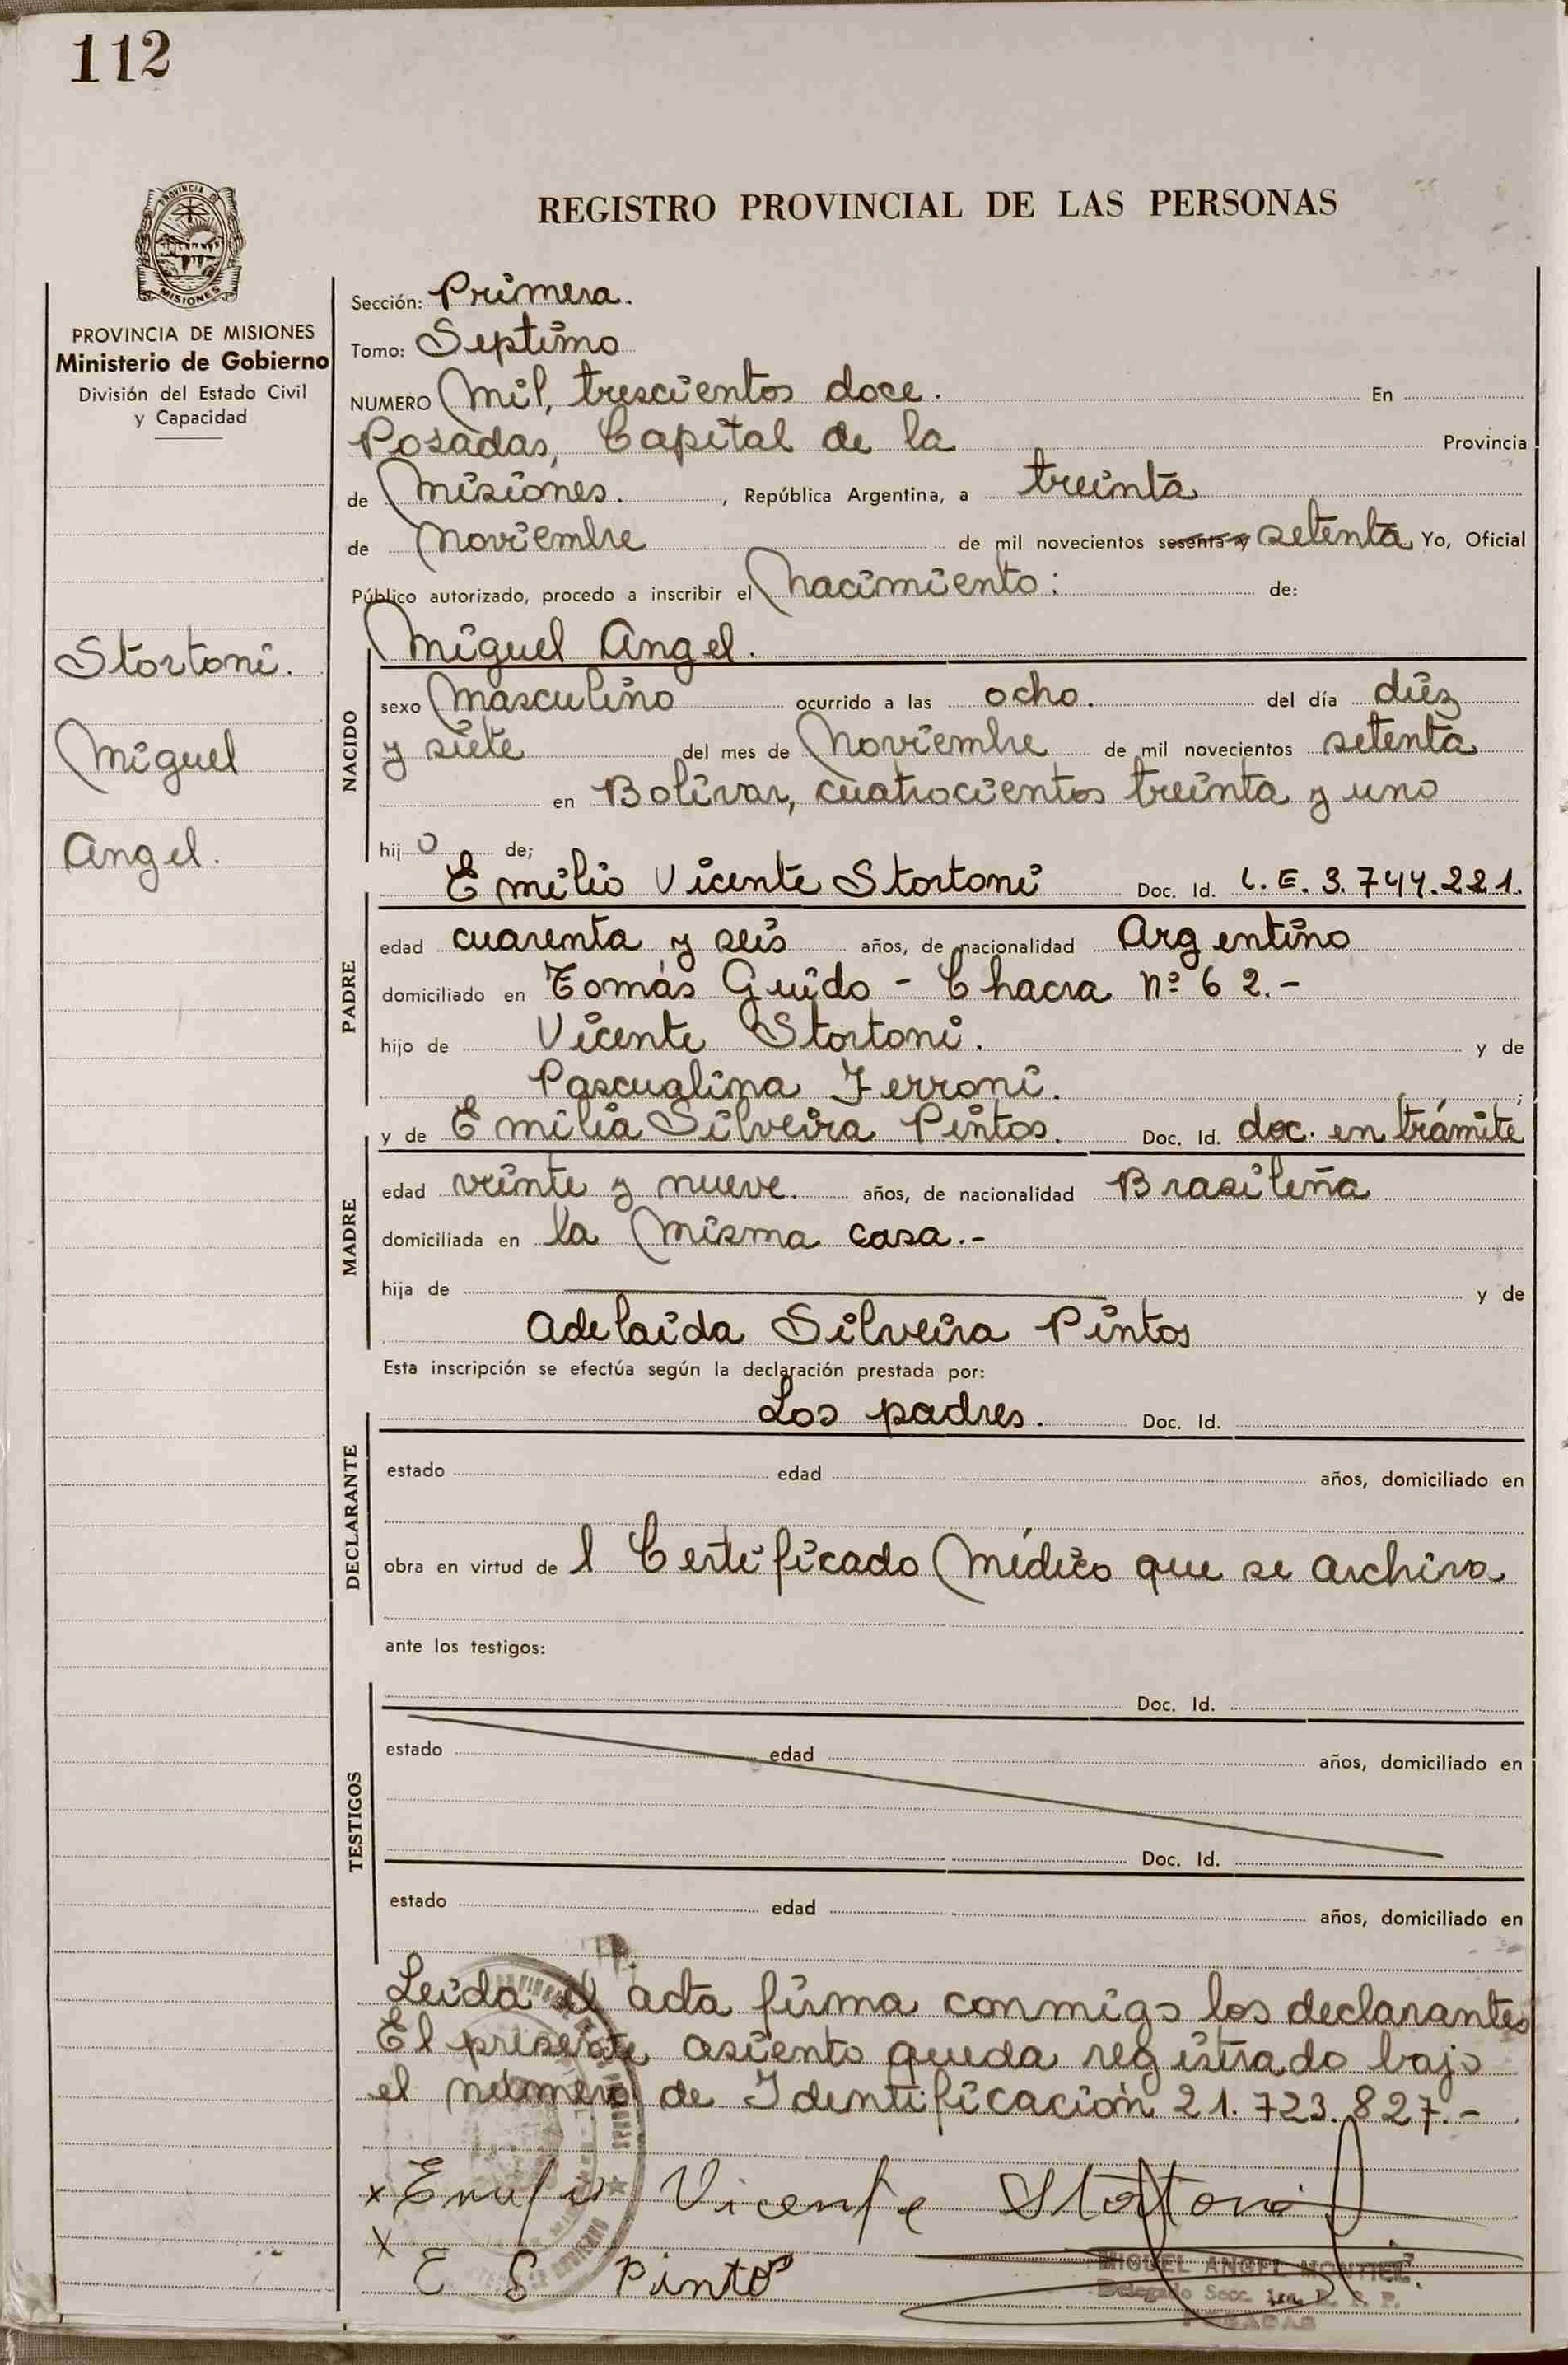 112
PROVINCIA DE
MISIONES
REGISTRO PROVINCIAL DE LAS PERSONAS
PROVINCIA DE MISIONES
Ministerio de Gobierno
División del Estado Civil
y Capacidad
Stortoni.
Miguel
Angel.
Sección: Primera.
Tomo: Septimo
NUMERO Mil, trescientos doce. En
Posadas, Capital de la Provincia
de Misiones. , República Argentina, a treinta
de Noviembre de mil novecientos sesenta y setenta Yo, Oficial
Público autorizado, procedo a inscribir el Nacimiento: de:
Miguel Angel.
NACIDO
sexo Masculino ocurrido a las ocho. del día diez
y siete del mes de Noviembre de mil novecientos setenta
en Bolivar, cuatrocientos treinta y uno
hij o de;
Emilio Vicente Stortoni Doc. Id. L.E. 3.744.221.
PADRE
edad cuarenta y seis años, de nacionalidad Argentino
domiciliado en Tomás Guido - Chacra Nº 62.-
hijo de Vicente Stortoni. y de
Pascualina Ferroni. ;
y de Emilia Silveira Pintos. Doc. Id. doc. en trámite
MADRE
edad veinte y nueve. años, de nacionalidad Brasileña
domiciliada en la Misma casa.-
hija de y de
Adelaida Silveira Pintos
Esta inscripción se efectúa según la declaración prestada por:
Los padres. Doc. Id.
DECLARANTE
estado edad años, domiciliado en
obra en virtud de l Certificado Médico que se archiva
ante los testigos:
TESTIGOS
Doc. Id.
estado edad años, domiciliado en
Doc. Id.
estado edad años, domiciliado en
Leida el acta firma conmigo los declarantes
El presente asiento queda registrado bajo
el número de Identificación 21.723.827.-
x Emilio Vicente Stortoni
x
E S Pintos
MIGUEL ANGEL MONTIEL
Delegado Secc. 1ra. R. P. P.
POSADAS